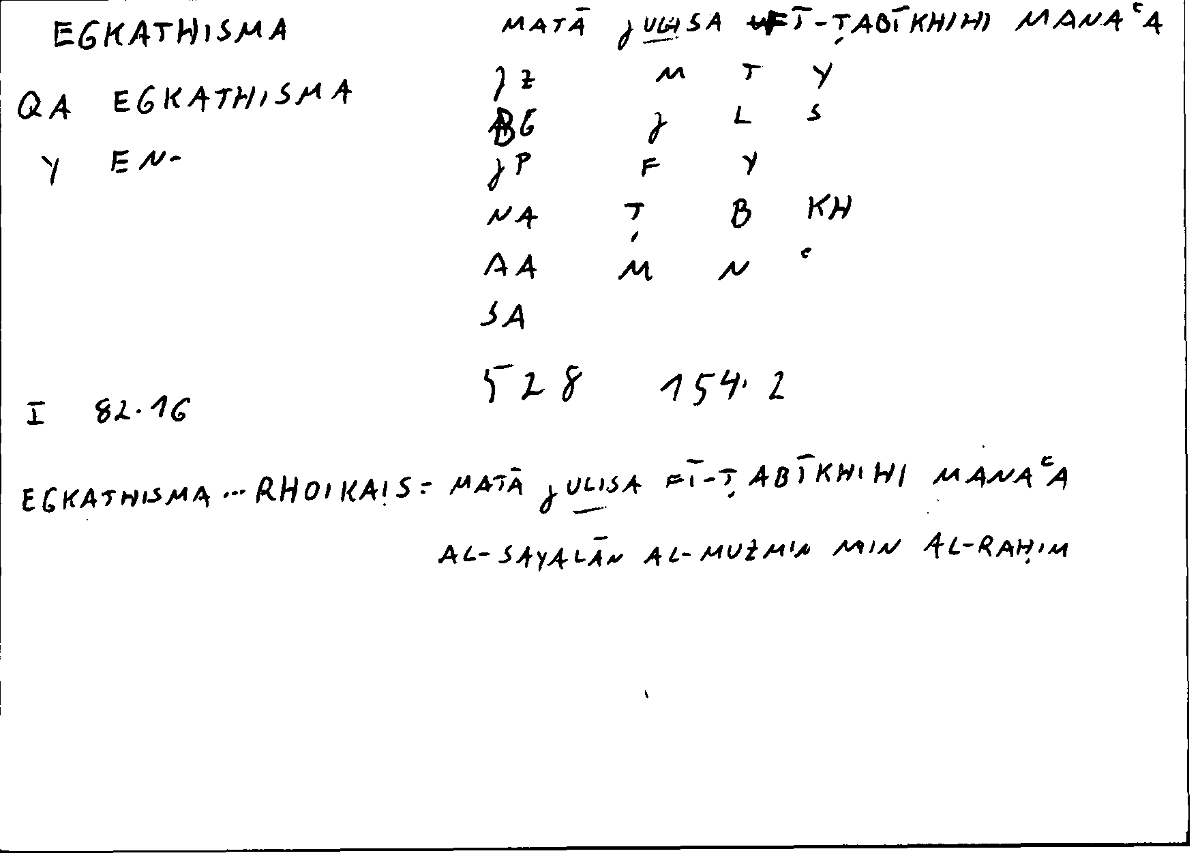 EGKATHISMA MATĀ JULISA FĪ-ṬABĪKHIHI MANAʿA
JZ M T Y
QA EGKATHISMA
BG J L S
Y EN-
JP F Y
NA Ṭ B KH
AA M N ʿ
SA
528 154.2
I 82.16
EGKATHISMA ... RHOIKAIS = MATĀ JULISA FĪ-ṬABĪKHIHI MANAʿA
AL-SAYALĀN AL-MUZMIN MIN AL-RAḤIM